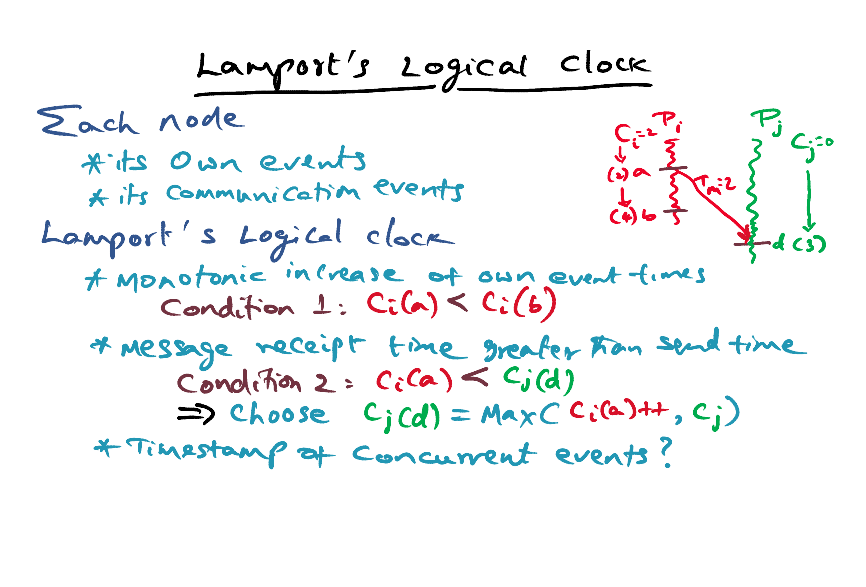 Lamport's Logical Clock
Each node
* its own events
* its communication events
Lamport's Logical clock
* Monotonic increase of own event times
Condition 1: Ci(a) < Ci(b)
* Message receipt time greater than send time
Condition 2: Ci(a) < Cj(d)
⇒ choose Cj(d) = Max( Ci(a)++, Cj)
* Timestamp of concurrent events?
Pi
Ci=2
(2) a
(4) b
Tm=2
Pj
Cj=0
d (3)